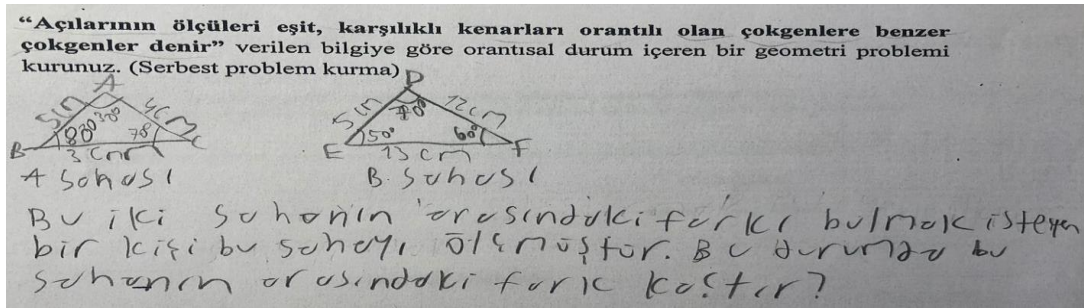 “Açılarının ölçüleri eşit, karşılıklı kenarları orantılı olan çokgenlere benzer
çokgenler denir” verilen bilgiye göre orantısal durum içeren bir geometri problemi
kurunuz. (Serbest problem kurma)
A D
5cm 4cm 5cm 70° 12cm
78 50° 60°
B 3 cm C E 13 cm F
A Sahası B. Sahası
Bu iki sahanın arasındaki farkı bulmak isteyen
bir kişi bu sahayı ölçmüştür. Bu durumda bu
sahanın arasındaki fark kaçtır?